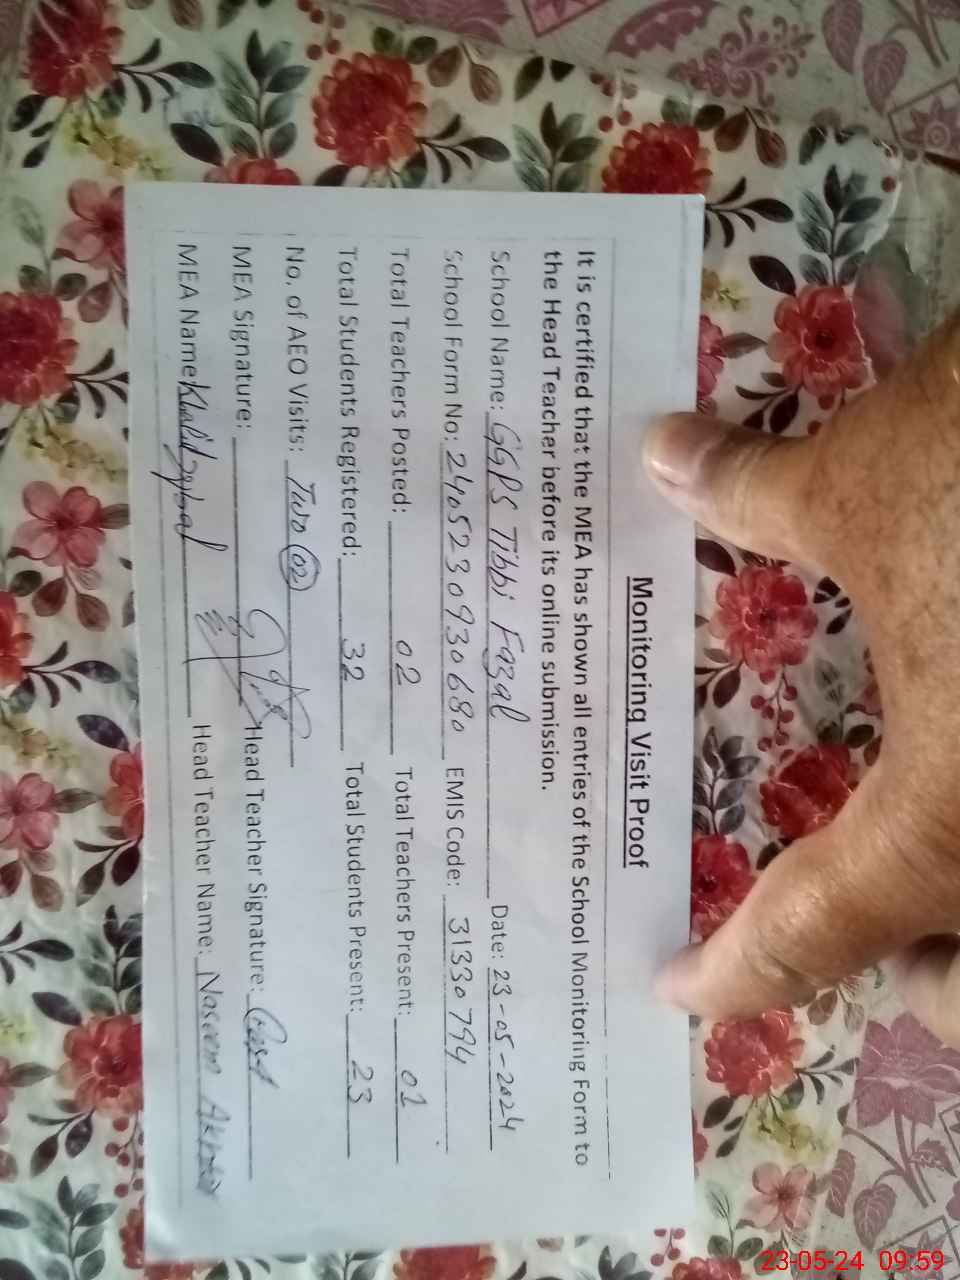 Monitoring Visit Proof
It is certified that the MEA has shown all entries of the School Monitoring Form to
the Head Teacher before its online submission.
School Name: GGPS Tibbi Fazal Date: 23-05-2024
School Form No: 2405230930680 EMIS Code: 31330794
Total Teachers Posted: 02 Total Teachers Present: 02
Total Students Registered: 32 Total Students Present: 23
No. of AEO Visits: Two (02)
MEA Signature: Head Teacher Signature:
MEA Name: Khalid Head Teacher Name: Naseem Akhtar
23-05-24 09:59